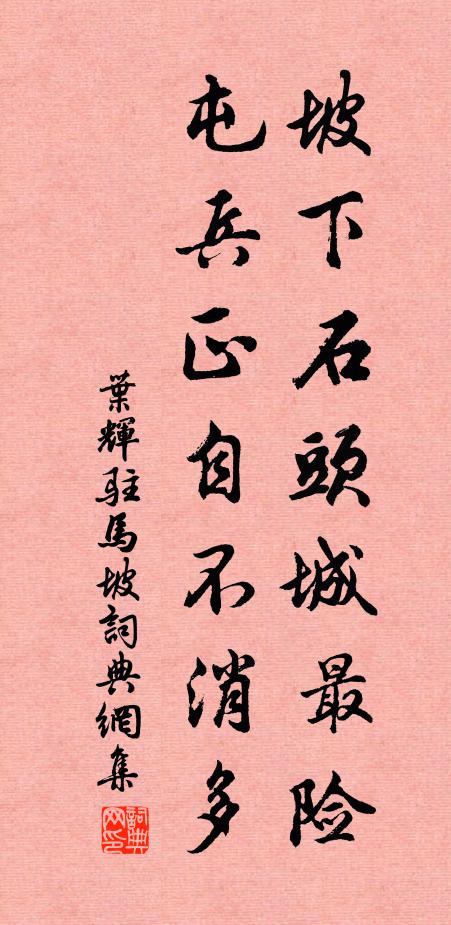 坡下石頭城最险
屯兵正自不消多
葉輝駐馬坡詞典網集
詞典网印